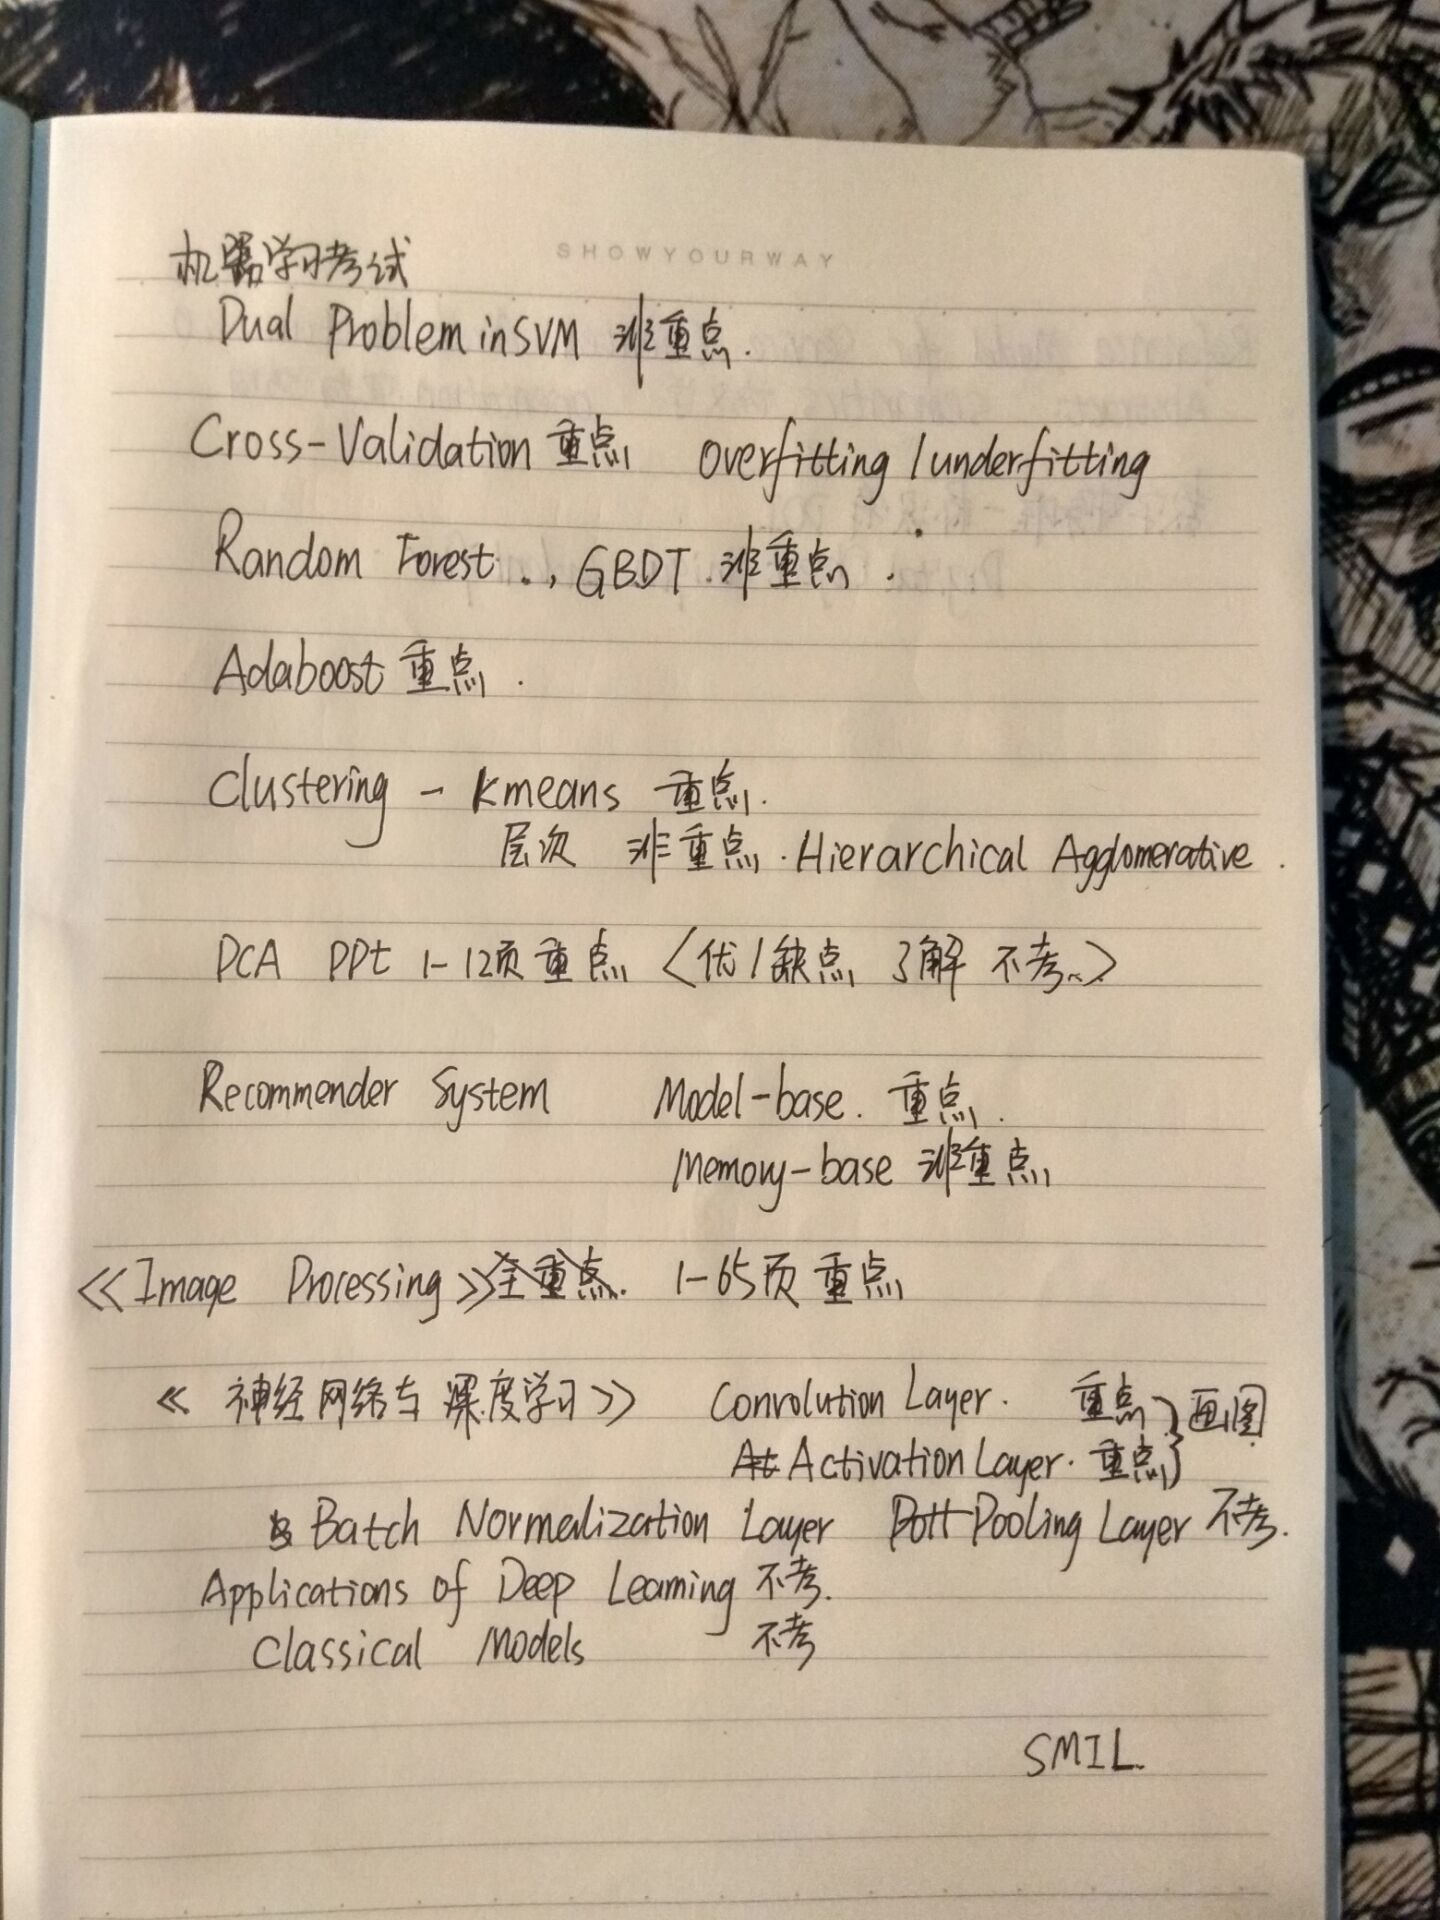 SHOWYOURWAY
机器学习考试
Dual Problem in SVM 非重点.
Cross-Validation 重点 overfitting / underfitting
Random Forest ., GBDT. 非重点.
Adaboost 重点.
Clustering - Kmeans 重点.
层次 非重点. Hierarchical Agglomerative.
PCA PPt 1-12页重点 〈优/缺点 了解 不考.〉
Recommender System Model-base. 重点.
Memory-base 非重点
《Image Processing》全重点. 1-65页重点
《神经网络与深度学习》 Convolution Layer. 重点 } 画图
Activation Layer. 重点
Batch Normalization Layer Pooling Layer 不考.
Applications of Deep Learning 不考.
Classical Models 不考
SMIL.